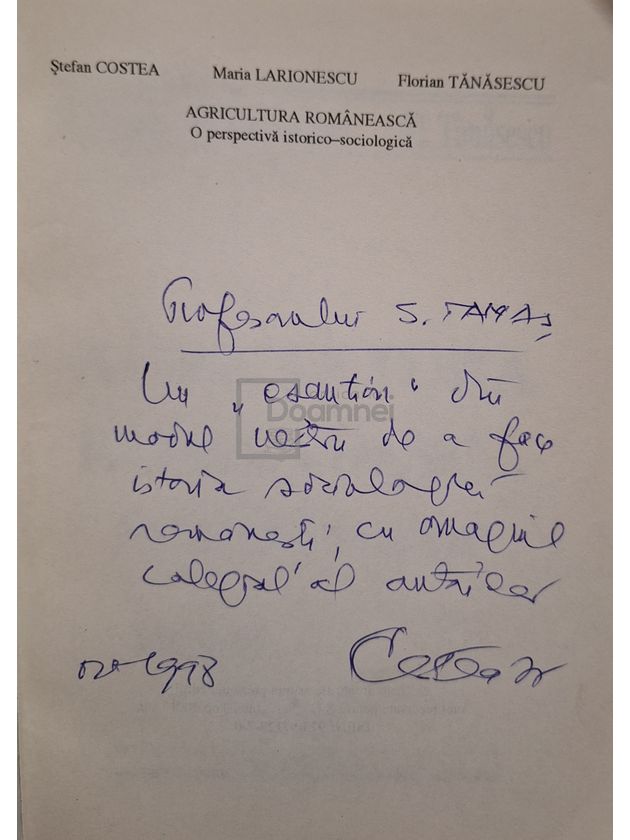 Ştefan COSTEA Maria LARIONESCU Florian TĂNĂSESCU
AGRICULTURA ROMÂNEASCĂ
O perspectivă istorico–sociologică
Profesorului S. TAMAŞ,
Un „eşantion" din
modul nostru de a face
istoria sociologiei
româneşti, cu omagiul
colegial al autorilor
1998 Costea
Doamnei